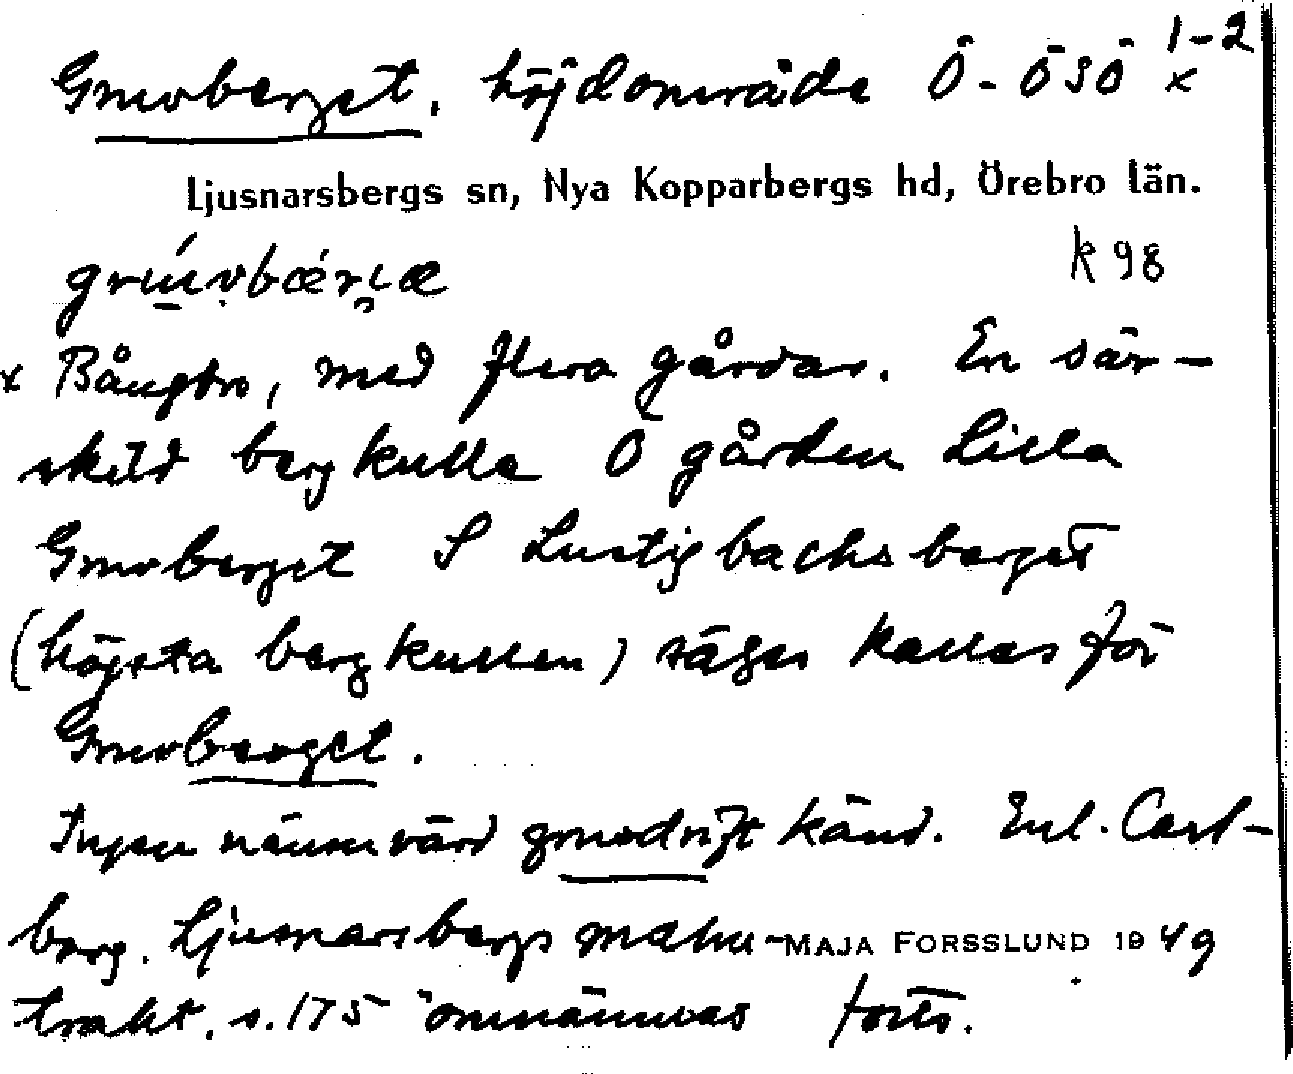 Gruvberget, höjdområde Ö-ÖSÖ x 1-2
Ljusnarsbergs sn, Nya Kopparbergs hd, Örebro län.
k 98
x Bångbro, med flera gårdar. En sär-
skild bergkulle Ö gården Lilla
Gruvberget S Lustigbacksberget
(högsta bergkullen) säges kallas för
Gruvberget.
Ingen nämnvärd gruvdrift känd. Enl. Carl-
berg. Ljusnarsbergs malm-
MAJA FORSSLUND 1949
trakt. s. 175 omnämnas forts.